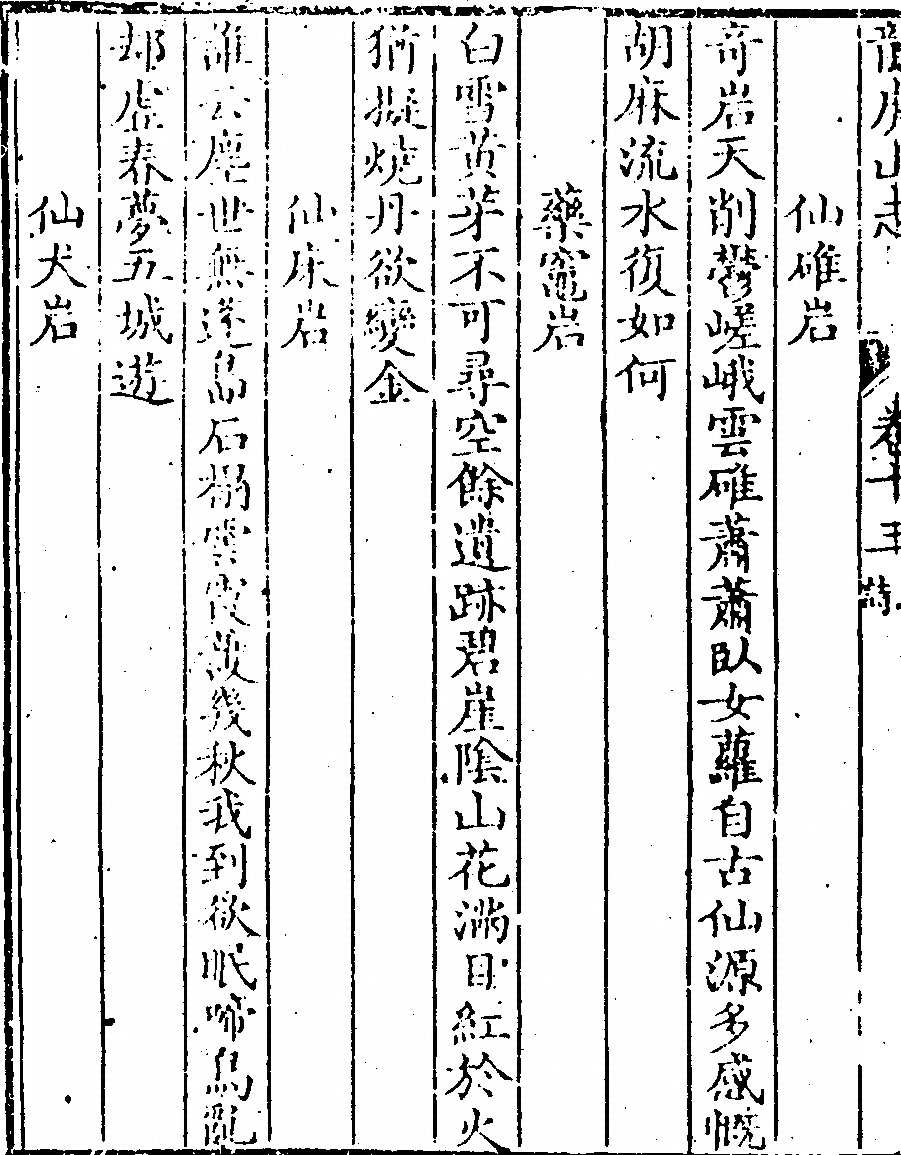 卷十三 詩
仙碓岩
奇岩天削鬱嵯峨雲碓蕭蕭臥女蘿自古仙源多感慨
胡麻流水復如何
藥竈岩
白雪黃芽不可尋空餘遺跡碧崖陰山花滿目紅於火
猶擬燒丹欲變金
仙床岩
誰云塵世無蓬島石榻雲霞護幾秋我到欲眠啼鳥亂
却虛春夢五城遊
仙犬岩